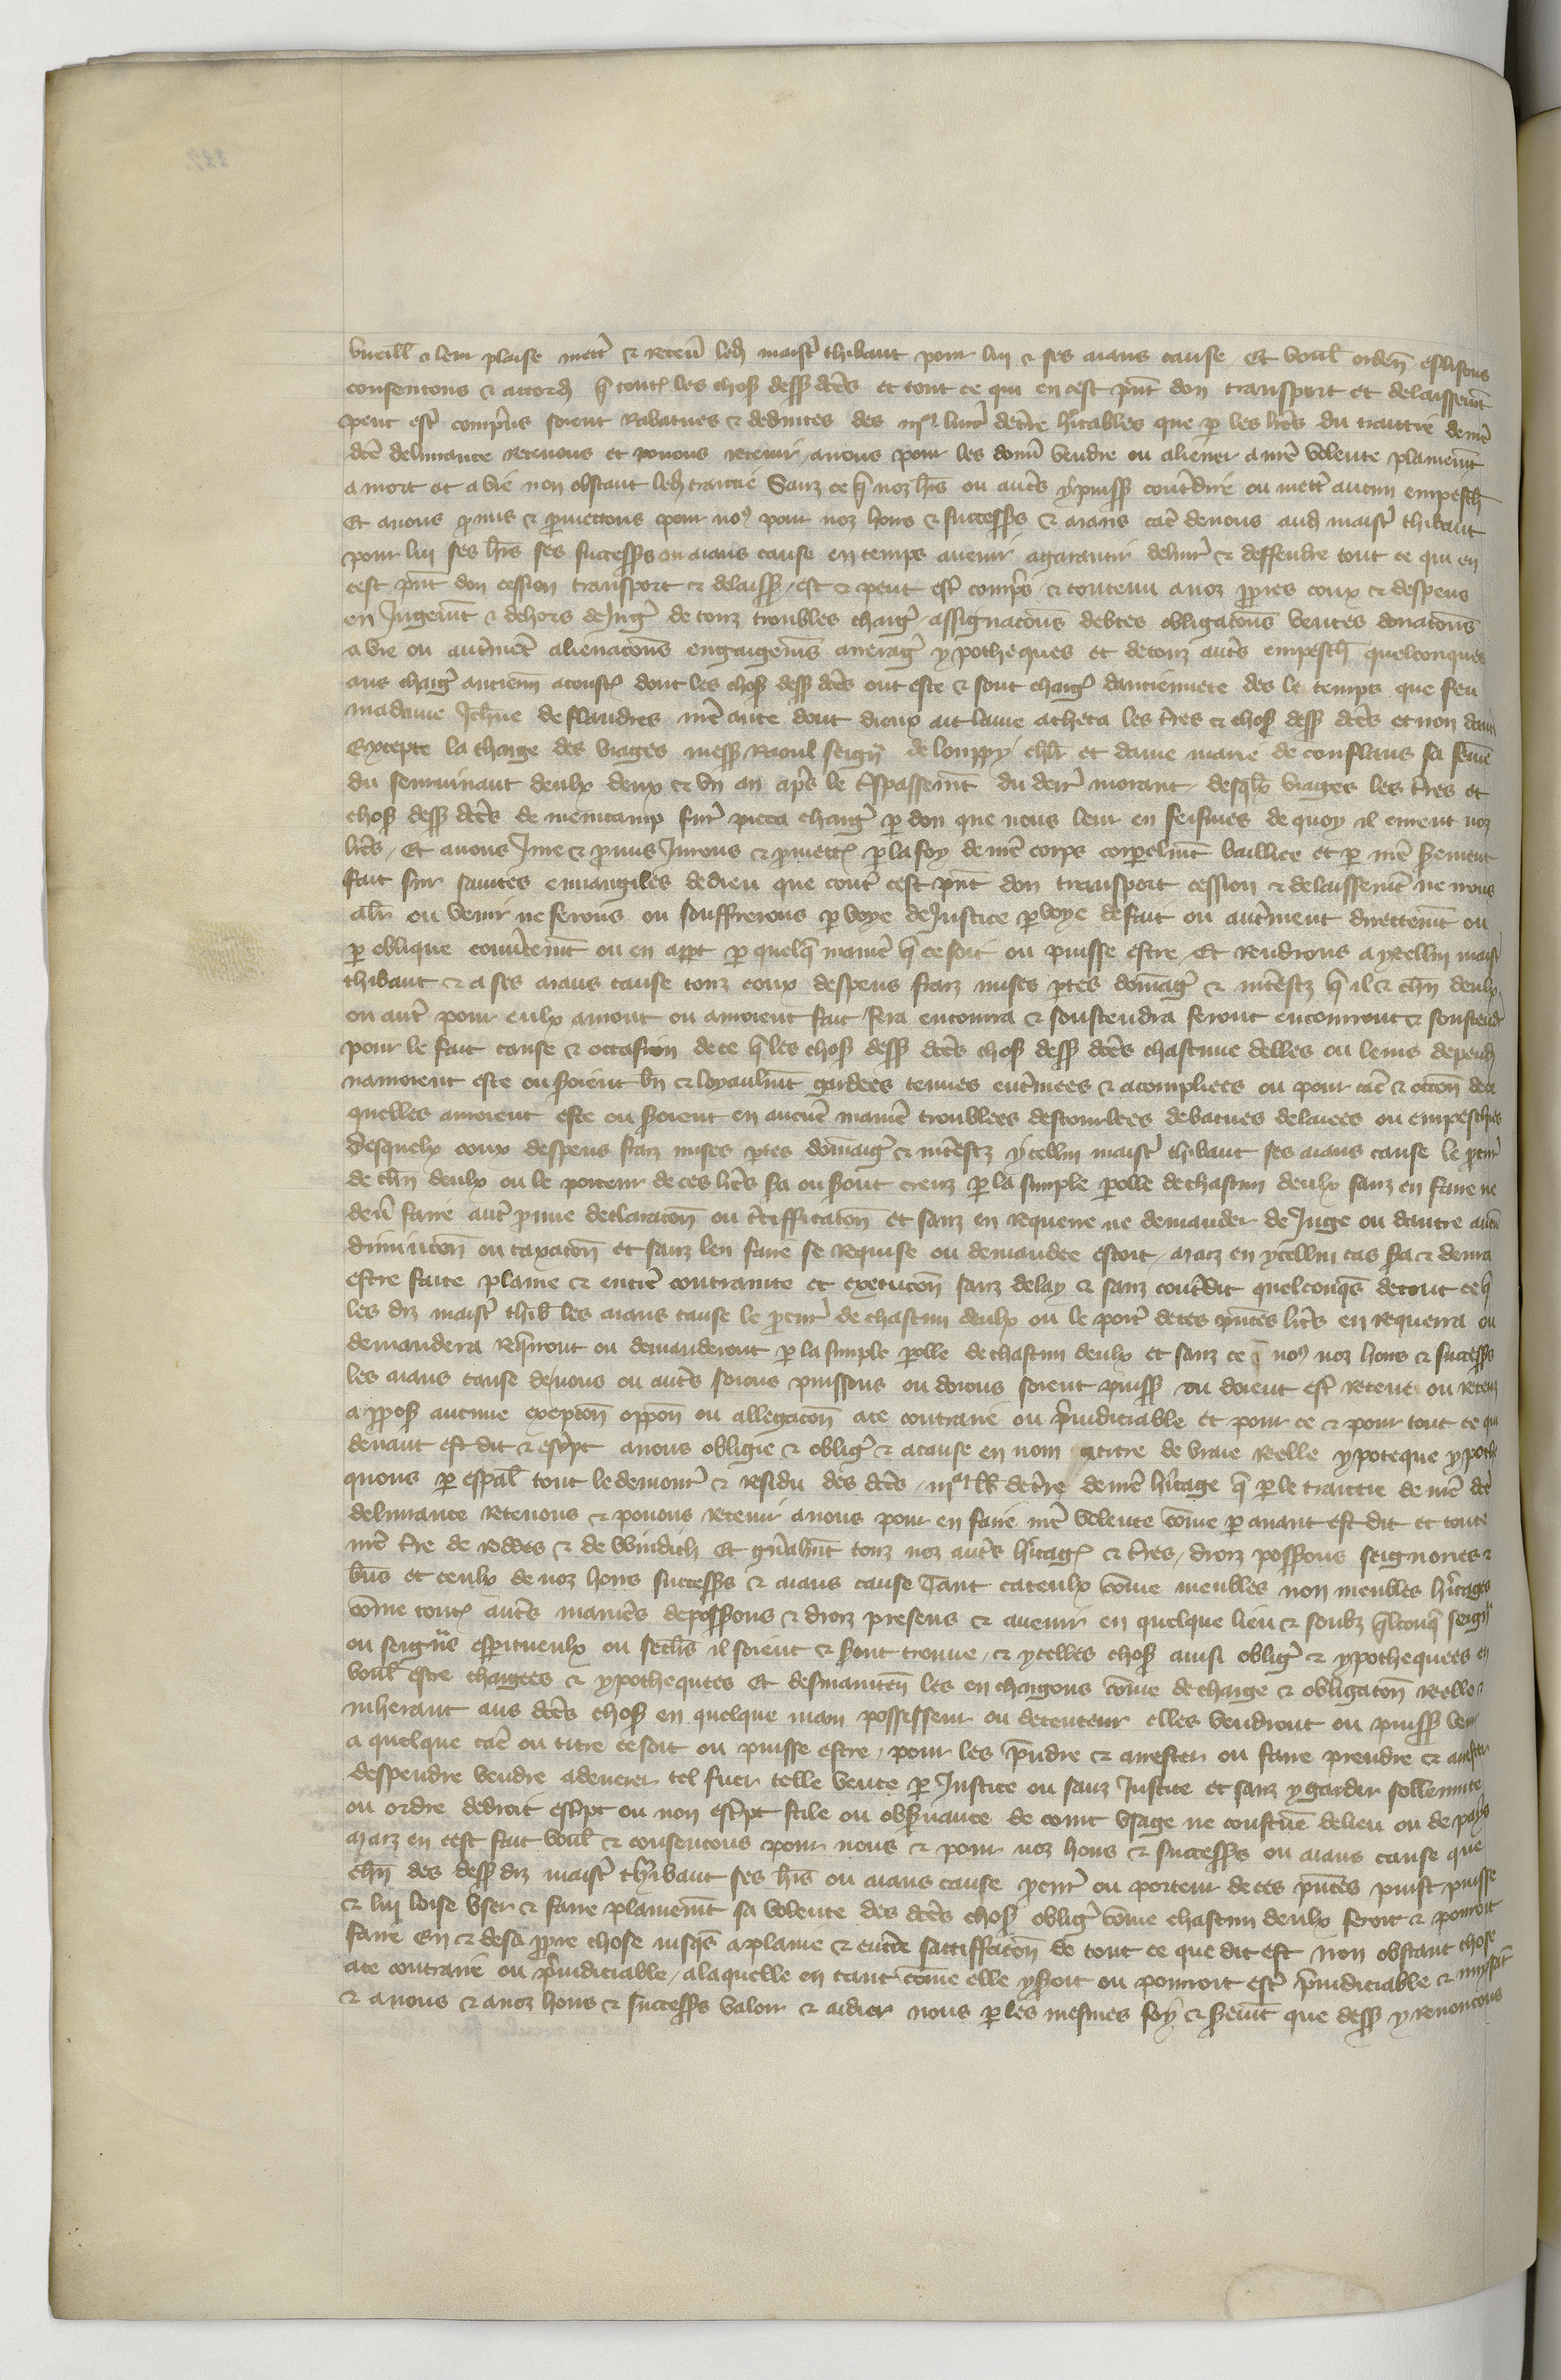 vueill̃ & leur plaise mettr̃ & receu̾ led̃ maistr̃ thibaut pour lui & ses aians cause. Et voul̃ orden̾ eslisons
consentons & accord̃ q̃ toutes les chos̃ dess̃ dc̃es et tout ce qui en cest pn̾t don transport et delaissem̃t
peut estr̃ compris soient Rabatues & deduites des livr̃ de t̃re hr̃itables que p les lr̃es du traittie de nr̃e
dc̃e delivrance retenons et povons retenir a nous pour les donn̾ vendre ou aliener a nr̃e volente plainem̃t
a mort et a vie non obstant led̃ traittie Sanz ce q̃ noz hr̃s ou autr̃s y puiss̃ contr̃dire ou mettr̃ aucun empesch̃
Et avons p̾mis & p̾mettons pour nos pour noz hoirs & success̾s & aians cāe de nous aud̃ maistr̃ thibaut
pour lui ses hr̃s ses success̾s ou aians cause en temps avenir a garantir delivr̃ & deffendre tout ce qui en
cest pn̾t don cession transport & delaiss̃. est & peut estr̃ comp̾s & contenu a noz pp̾res coux & despens
en Jugem̃t & dehors de Jug̃ de touz troubles charg̃ assignacōns debtes obligacōns ventes donacōns
a vie ou autr̃mēt alienacōns engaigem̃s arrerag̃ ypotheques et de touz autr̃s empesch̃ quelconques
aus charg̃ ancienn̾ acoust̾ dont les chos̃ dess̃ dc̃es ont este & sont charg̾ danciennete des le temps que feu
madame Jeh̃ne de flandres nr̃e ante dont dieux ait lame acheta les t̃res & chos̃ dess̃ dc̃es et non dautr̃
Excepte la charge des viages mess̃ Raoul seign̾ de louppy chlr̃ et dame marie de conflans sa fem̃e
du seurvivant deulx deux & vn an ap̾s le t̾spassem̃t du derr̃ morant. desqlx̃ viages les t̃res et
chos̃ dess̃ dc̃es de menicamp fur̃ pieca charg̃ p don que nous leur en feismes de quoy il eurent noz
lr̃es. Et avons Jure & p̾mis Jurons & p̾mett̾ p la foy de nr̃e corps corpelm̃t bailliee et p nr̃e serment
fait sur saintes euuangiles de dieu que contr̃ cest pn̾t don transport cession & delaissem̃t ne irons
alr̃ ou venir ne ferons ou souffrerons p voye de Justice p voye de fait ou autr̃ment directem̃t ou
p oblique couu̾tem̃t ou en app̾t p quelq̃ manie̾ q̃ ce soit ou puisse estre. Et Rendrons a ycellui maistr̃
thibaut & a ses aians cause touz coux despens fraiz mises p̾tes dom̃ag̃ & int̾estz q̃ il & chũn deulx
ou autr̃ pour eulx auront ou auroient fait fera encourra & soustendra feront encourront & soustendr̃
pour le fait cause & occasion de ce q̃ les chos̃ dess̃ dc̃es chos̃ dess̃ dc̃es chascune delles ou leurs depend̃
nauroient este ou seroient bn̾ & loyaulm̃t gardees tenues entr̃inees & acomplies ou pour cāe & occōn de ce
quelles auroient este ou seroient en aucune manie̾ troublees destourbees debatues delaiees ou empeschies
desquelx coux despens fraiz mises p̾tes dom̃aig̃ & int̾estz ycellui maistr̃ thibaut ses aians cause le p̾cur̃
de chũn deulx ou le porteur de ces lr̃es sera ou seront creuz p la simple p̾olle de chascun deulx sanz en faire ne
deu̾ faire autr̃ p̾uue declaracōn ou c̾tifficacōn et sanz en requerre ne demander de Juge ou dautre aucun̾
diminucōn ou taxacōn et sanz len faire se requise ou demandee estoit. maiz en ycellui cas sera & devra
estre faite plaine & entie̾ contrainte et execucōn sanz delay & sanz contr̃dit quelconq̃s de tout ce q̃
les diz maistr̃ thib̃ les aians cause le p̾cur̃ de chascun deulx ou le port̾ de ces pn̾tes lr̃es en requerra ou
demandera req̃rront ou demanderont p la simple p̾olle de chascun deulx et sanz ce q̃ nos noz hoirs & success̾s
les aians cause de nous ou autr̃s soions puissons ou doions soient puiss̃ ou doient estr̃ receuz ou receu̾
a pp̾os̃ aucune excepcōn oppōn ou allegacōn a ce contraire ou p̾iudiciable et pour ce & pour tout ce qui
devant est dit & esc̾pt avons obligie & oblig̃ & a cause en nom & titre de vraie reelle ypoteque ypothe
quons p esp̃al tout le demour̃ & residu des dc̃es de t̃re de nr̃e hr̃itage q̃ p le traittie de nr̃e dc̃e
delivrance retenons & povons retenir a nous pour en faire nr̃e volente cōme p avant est dit et toute
nr̃e t̃re de roddes & de windich Et gñalm̃t touz noz autr̃s hr̃itag̾ & t̃res, droiz possess̾ons seignories &
bñs et ceulx de noz hoirs success̾s & aians cause Tant cateulx cōme meubles non meubles hr̃itages
cōme tout̾ autr̃s manie̾s de possess̾ons & droiz presens & avenir en quelque lieu & soubz q̃lconq̃ seign̾
ou seign̾ie esp̾ituenlx ou secl̃rs il soient & seront trouve, & ycelles chos̃ ainsi oblig̃ & ypothequees en
voul̃ estre chargees & ypothequees Et desmaintēn les en chargons cōme de charge & obligacōn reelle &
inherant aus dc̃es chos̃ en quelque main possesseur ou detenteur elles vendront ou puiss̃ venir
a quelque cāe ou titre ce soit ou puisse estre, pour les p̾ndre & arrester ou faire prendre & arrester
despendre vendre adenerer tel fuer telle vente p Justice ou sanz Justice et sanz y garder sollennite
ou ordre de droit esc̾pt ou non esc̾pt stile ou obs̾uance de court vsage ne coustum̃e de lieu ou de pays
maiz en cest fait voul̃ & consentons pour nous & pour noz hoirs & success̾s ou aians cause que
chũn des dess̃ diz maistr̃ thibaut ses hr̃s ou aians cause p̾cur̃ ou porteur de ces pn̾tes puist puisse
& lui loise vser & faire plainem̃t sa volente des dc̃es chos̃ oblig̃ cōme chascun deulx feroit & pourroit
faire en & de sa pp̾re chose iusq̃s a plaine & entie̾ sattiffacōn de tout ce que dit est non obstant chose
a ce contraire ou p̾iudiciable, a laquelle en tant cōme elle y seroit ou pourroit estr̃ p̾iudiciable &
& a nous & a noz hoirs & success̾s valoir & aidier nous p les mesmes foy & serem̃t que dess̃ y renoncons